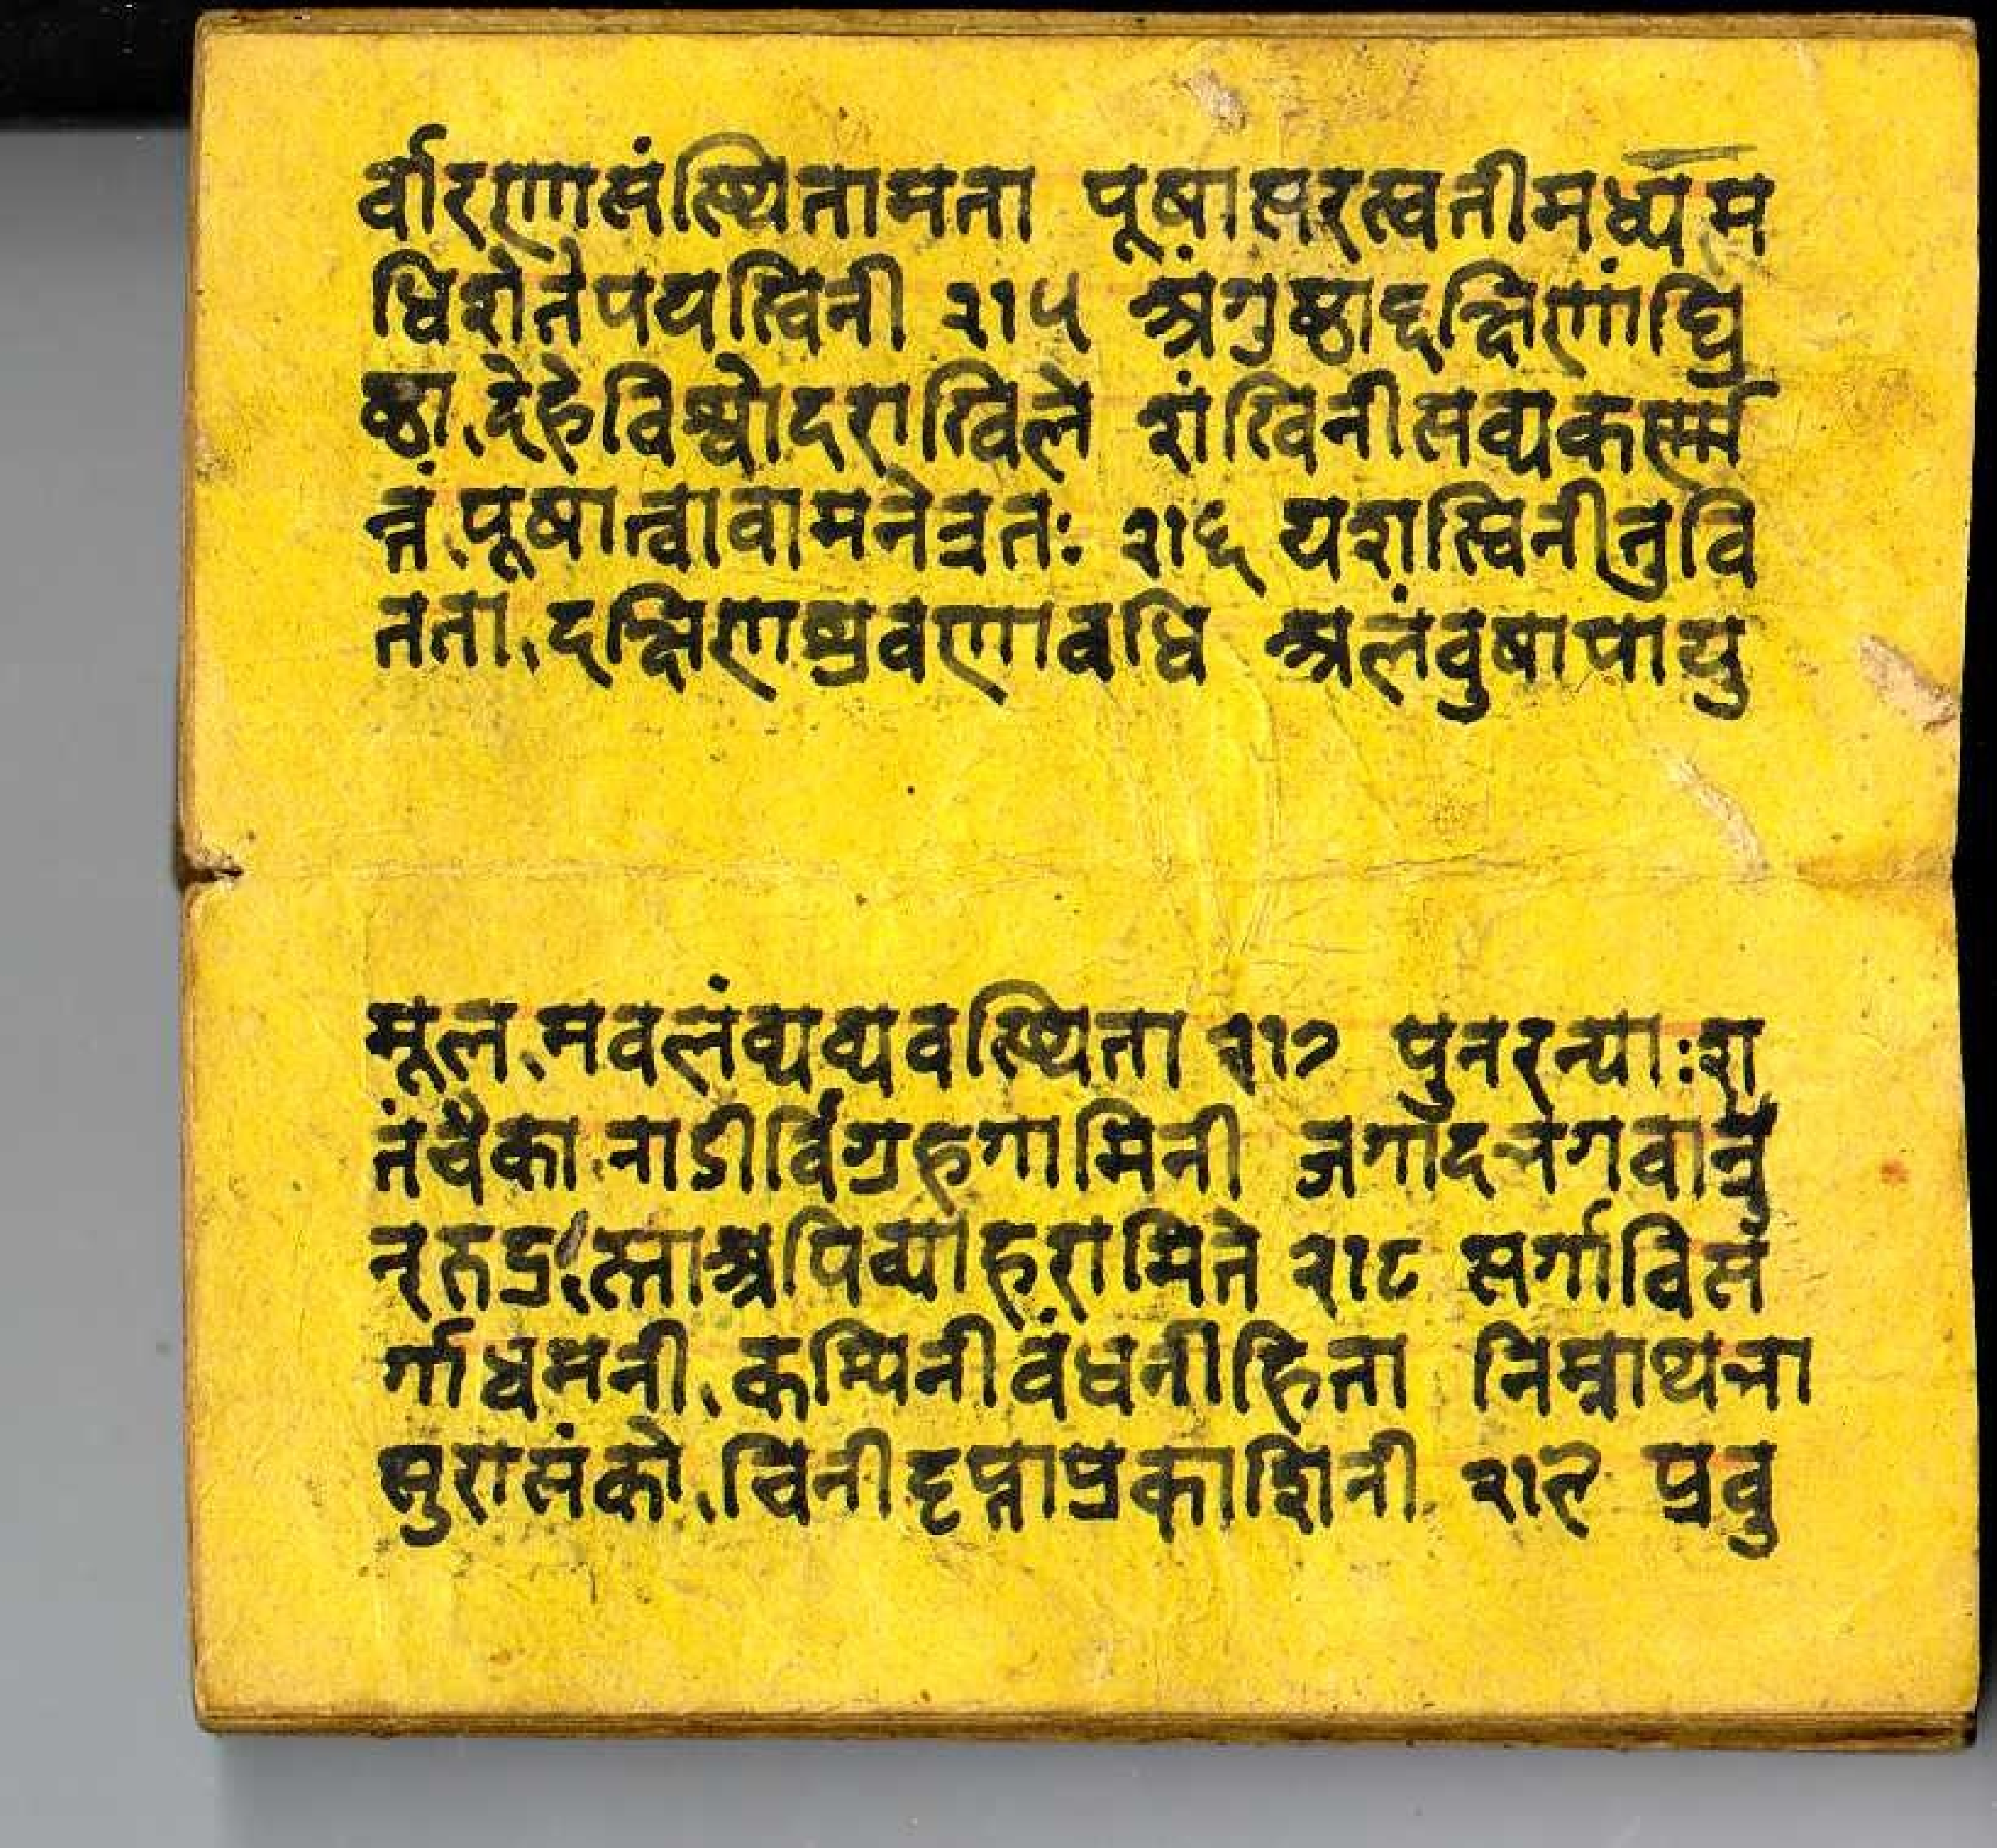 र्वारणासंस्थितामता पूषासरस्वतीमध्यम
धिशेतेपयस्विनी २१५ अंगुष्ठाद्दक्षिणांघ्रि
ष्ठा देहेविश्वोदराखिले शंखिनीसव्यकर्ण्म
तं पूषात्वावामनेत्रतः २१६ यशस्विनीतुवि
तता दक्षिणाश्रवणावधि अलंवुषापायु
मूल मवलंव्यव्यवस्थिता २१७ पुनरन्याःश
तंचैका नाडीर्विग्रहगामिनी जगादभगवान्
न्रुद्र स्ताअपिव्याहरामिते २१८ सर्गाविस
र्गाधमनी कम्पिनीवंधनीहिता निम्नाथना
सुरासंको चिनीदृप्ताप्रकाशिनी २१९ प्रवु